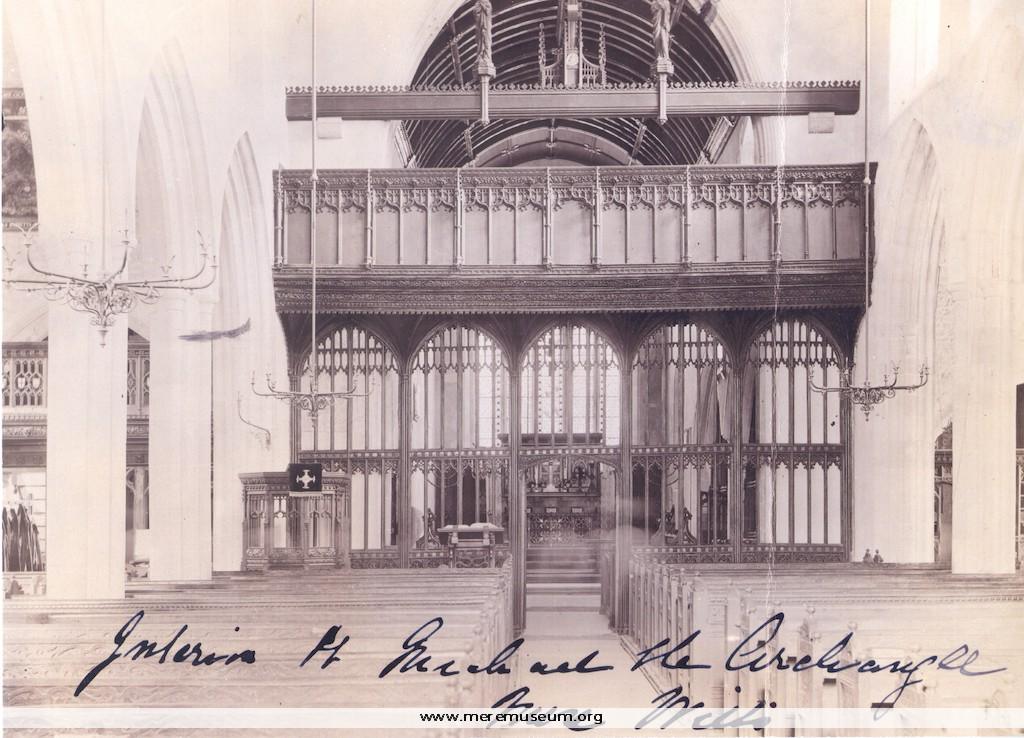 Interior St Michael the Archangel
Mere Wilts
www.meremuseum.org